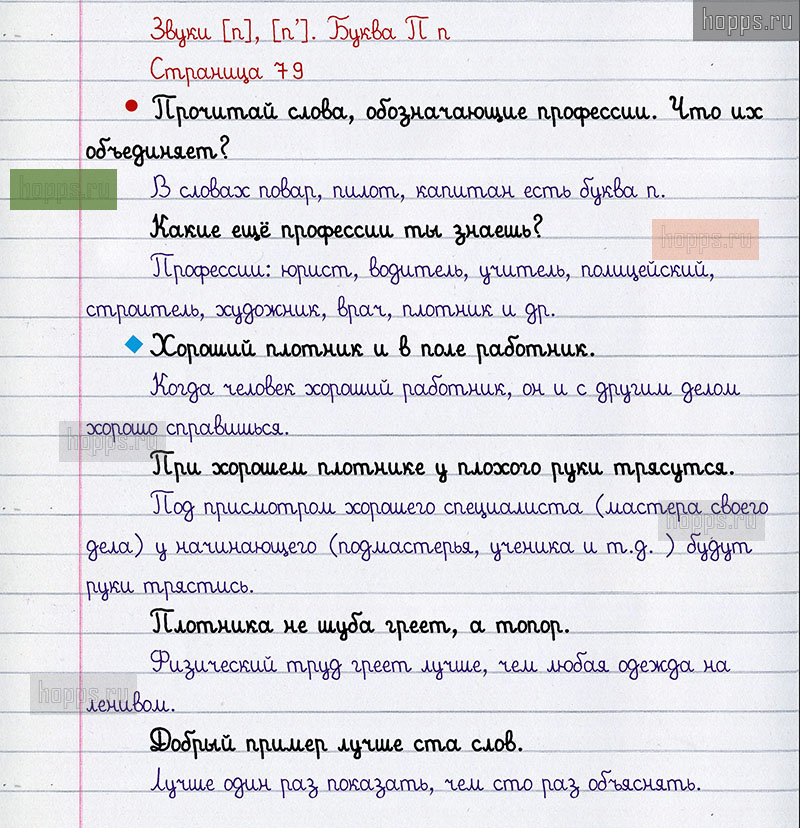 hopps.ru
Звуки [п], [п']. Буква П п
Страница 79
Прочитай слова, обозначающие профессии. Что их
объединяет?
hopps.ru
В словах повар, пилот, капитан есть буква п.
Какие ещё профессии ты знаешь?
hopps.ru
Профессии: юрист, водитель, учитель, полицейский,
строитель, художник, врач, плотник и др.
Хороший плотник и в поле работник.
Когда человек хороший работник, он и с другим делом
хорошо справишься.
hopps.ru
При хорошем плотнике у плохого руки трясутся.
Под присмотром хорошего специалиста (мастера своего
hopps.ru
дела) у начинающего (подмастерья, ученика и т.д. ) будут
руки трястись.
Плотника не шуба греет, а топор.
Физический труд греет лучше, чем любая одежда на
hopps.ru
ленивом.
Добрый пример лучше ста слов.
Лучше один раз показать, чем сто раз объяснять.